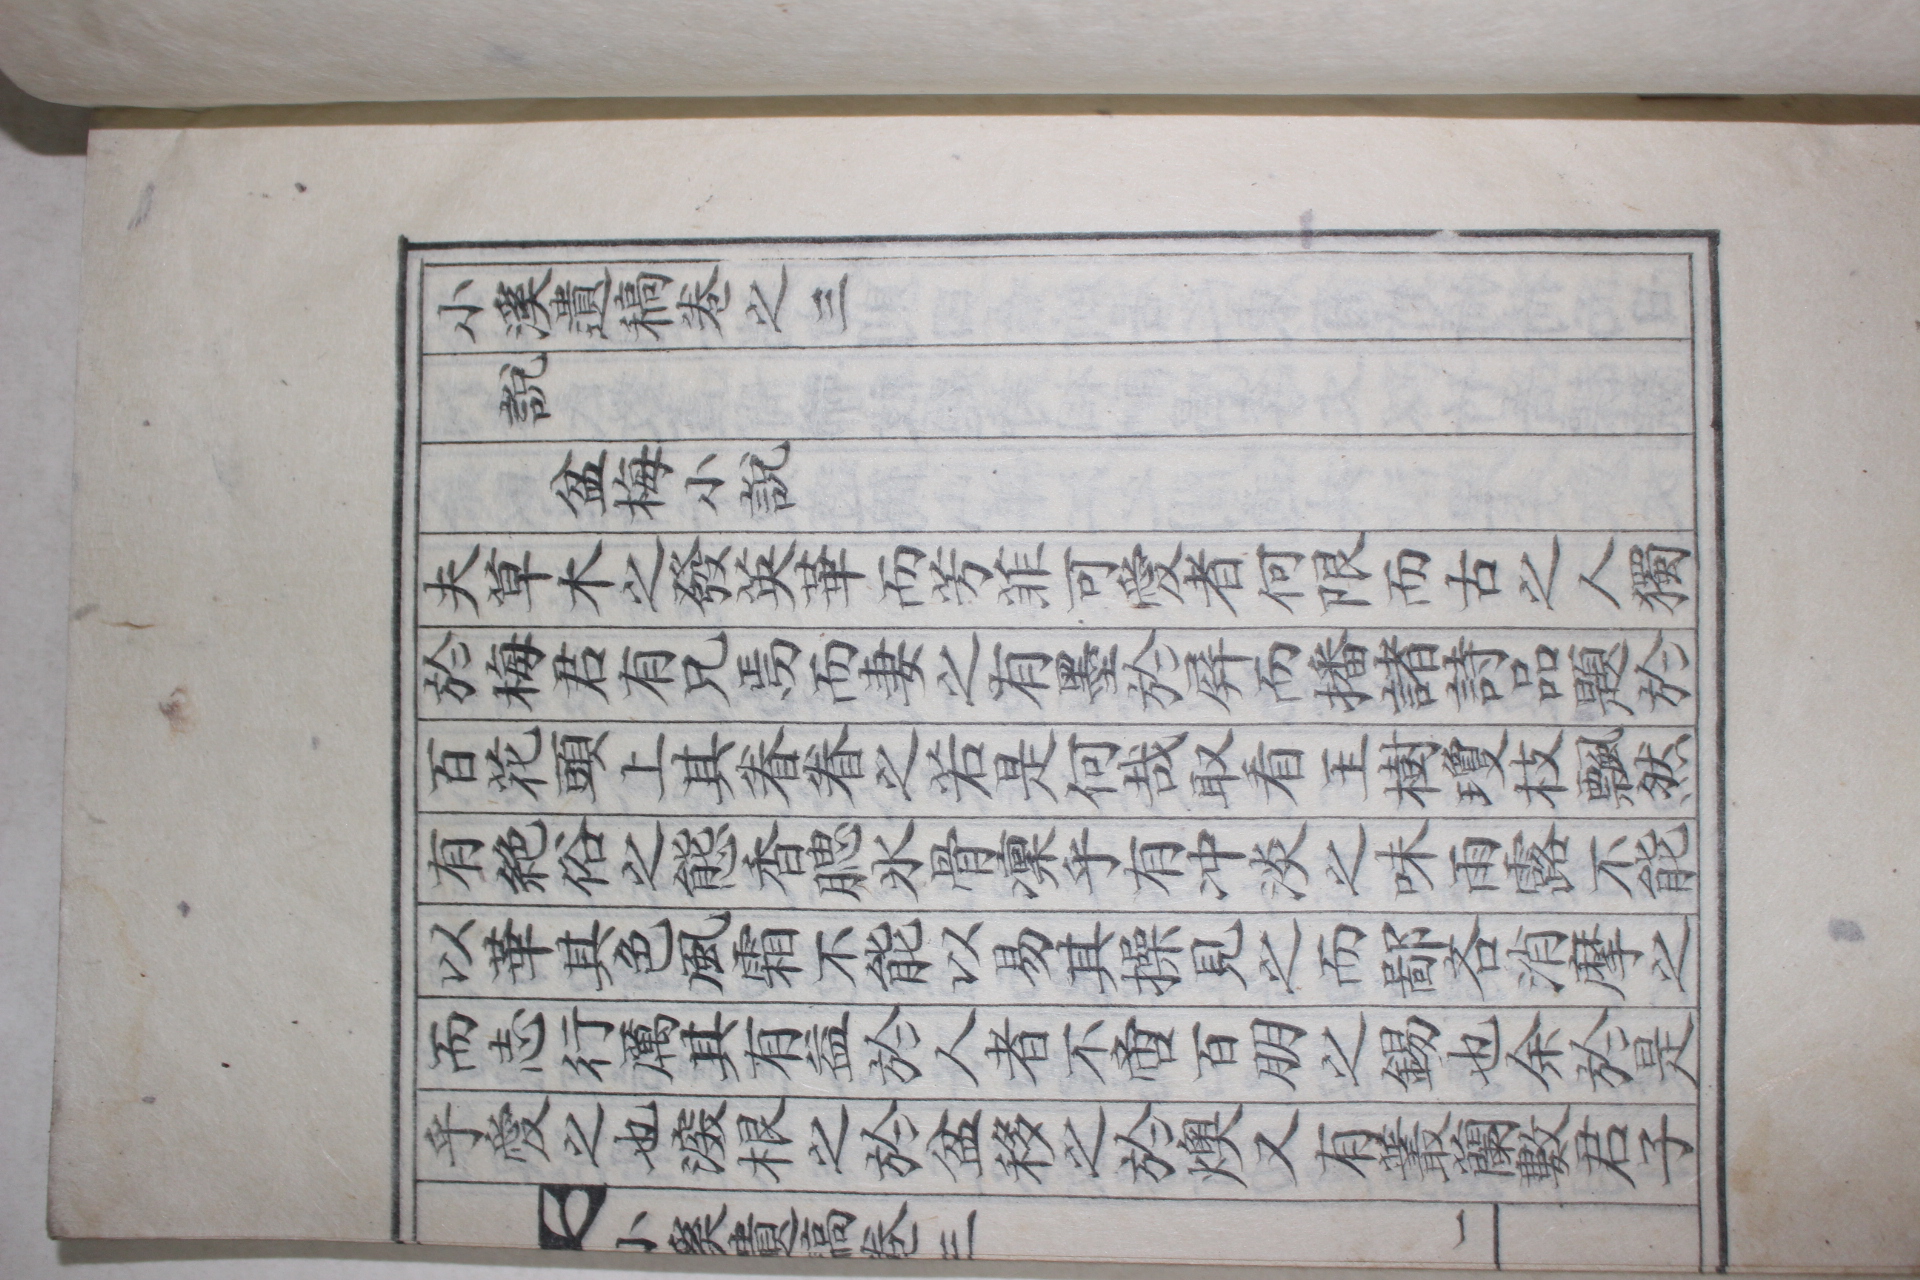 小溪遺稿卷之三
說
盆梅小說
夫草木之發英華而芳菲可愛者何限而古之人獨
於梅君有兄焉而妻之有墨於屛而播諸詩品題於
百花頭上其眷眷之若是何哉取看玉樹瓊枝飄然
有絶俗之態香腮氷骨凜乎有冲淡之味雨露不能
以華其色風霜不能以易其操見之而鄙吝消摩之
而志行厲其有益於人者不啻百朋之錫也余於是
乎愛之也潑根之於盆移之於燠又有叢蘭數君子
小溪遺稿卷三 一